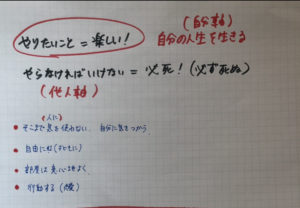 やりたいこと = 楽しい!
(自分軸)
自分の人生を生きる
やらなければいけない = 必死!(必ず死ぬ)
(他人軸)
(人に)
そこまで気を使わない、自分に気をつかう
自由に
部屋は 心地よく
行動する